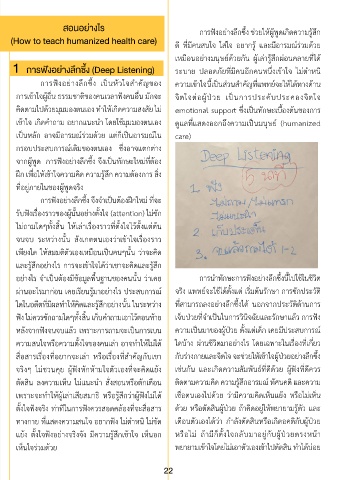 สอนอย่างไร
(How to teach humanized health care)
1 การฟังอย่างลึกซึ้ง (Deep Listening)
การฟังอย่างลึกซึ้ง เป็นหัวใจสำคัญของ
การเข้าใจผู้อื่น ธรรมชาติของคนเวลาฟังคนอื่น มักจะ
คิดตามไปด้วยมุมมองตนเอง ทำให้เกิดความสงสัย ไม่
เข้าใจ เกิดคำถาม อยากแนะนำ โดยใช้มุมมองตนเอง
เป็นหลัก อาจมีอารมณ์ร่วมด้วย แต่ก็เป็นอารมณ์ใน
กรอบประสบการณ์เดิมของตนเอง ซึ่งอาจแตกต่าง
จากผู้พูด การฟังอย่างลึกซึ้ง จึงเป็นทักษะใหม่ที่ต้อง
ฝึก เพื่อให้เข้าใจความคิด ความรู้สึก ความต้องการ สิ่ง
ที่อยู่ภายในของผู้พูดจริง
การฟังอย่างลึกซึ้ง จึงจำเป็นต้องฝึกใหม่ ที่จะ
รับฟังเรื่องราวของผู้นั้นอย่างตั้งใจ (attention) ไม่ซัก
ไม่ถามใดๆทั้งสิ้น ให้เล่าเรื่องราวที่ตั้งใจไว้ตั้งแต่ต้น
จนจบ ระหว่างนั้น สังเกตตนเองว่าเข้าใจเรื่องราว
เพียงใด ให้สมมติตัวเองเหมือนเป็นคนๆนั้น ว่าจะคิด
และรู้สึกอย่างไร การจะเข้าใจได้ว่าเขาจะคิดและรู้สึก
อย่างไร จำเป็นต้องมีข้อมูลพื้นฐานของคนนั้น ว่าเคย
ผ่านอะไรมาก่อน เคยเรียนรู้มาอย่างไร ประสบการณ์
ใดในอดีตที่มีผลทำให้คิดและรู้สึกอย่างนั้น ในระหว่าง
ฟัง ไม่ควรซักถามใดๆทั้งสิ้น เก็บคำถามเอาไว้ตอนท้าย
หลังจากฟังจนจบแล้ว เพราะการถามจะเป็นการเบน
ความสนใจหรือความตั้งใจของคนเล่า อาจทำให้ไม่ได้
สื่อสารเรื่องที่อยากจะเล่า หรือเรื่องที่สำคัญกับเขา
จริงๆ ไม่ชวนคุย ผู้ฟังหักห้ามใจตัวเองที่จะคิดแย้ง
ตัดสิน ลงความเห็น ไม่แนะนำ สั่งสอนหรือตักเตือน
เพราะจะทำให้ผู้เล่าเสียสมาธิ หรือรู้สึกว่าผู้ฟังไม่ได้
ตั้งใจฟังจริง ท่าทีในการฟังควรสอดคล้องที่จะสื่อสาร
ทางกาย ที่แสดงความสนใจ อยากฟัง ไม่ตำหนิ ไม่ขัด
แย้ง ตั้งใจฟังอย่างจริงจัง มีความรู้สึกเข้าใจ เห็นอก
เห็นใจร่วมด้วย
การฟังอย่างลึกซึ้ง ช่วยให้ผู้พูดเกิดความรู้สึก
ดี ที่มีคนสนใจ ใส่ใจ อยากรู้ และมีอารมณ์ร่วมด้วย
เหมือนอย่างมนุษย์ด้วยกัน ผู้เล่ารู้สึกผ่อนคลายที่ได้
ระบาย ปลอดภัยที่มีคนอีกคนหนึ่งเข้าใจ ไม่ตำหนิ
ความเข้าใจนี้เป็นส่วนสำคัญที่แพทย์จะให้ได้ทางด้าน
จิตใจต่อผู้ป่วย เป็นการประคับประคองจิตใจ
emotional support ซึ่งเป็นทักษะเบื้องต้นของการ
ดูแลที่แสดงออกถึงความเป็นมนุษย์ (humanized
care)
Deep Listening
1. ฟัง
3.
การนำทักษะการฟังอย่างลึกซึ้งนี้ไปใช้ในชีวิต
จริง แพทย์จะใช้ได้ตั้งแต่ เริ่มต้นรักษา การซักประวัติ
ที่สามารถลงอย่างลึกซึ้งได้ นอกจากประวัติด้านการ
เจ็บป่วยที่จำเป็นในการวินิจฉัยและรักษาแล้ว การฟัง
ความเป็นมาของผู้ป่วย ตั้งแต่เด็ก เคยมีประสบการณ์
ใดบ้าง ผ่านชีวิตมาอย่างไร โดยเฉพาะในเรื่องที่เกี่ยว
กับร่างกายและจิตใจ จะช่วยให้เข้าใจผู้ป่วยอย่างลึกซึ้ง
เช่นกัน และเกิดความสัมพันธ์ที่ดีด้วย ผู้ฟังที่ดีควร
ติดตามความคิด ความรู้สึกอารมณ์ ทัศนคติ และความ
เชื่อตนเองไปด้วย ว่ามีความคิดเห็นแย้ง หรือไม่เห็น
ด้วย หรือตัดสินผู้ป่วย ถ้าคิดอยู่ให้พยายามรู้ตัว และ
เตือนตัวเองได้ว่า กำลังตัดสินหรือเกิดอคติกับผู้ป่วย
หรือไม่ ถ้ามีก็ตั้งใจกลับมาอยู่กับผู้ป่วยตรงหน้า
พยายามเข้าใจโดยไม่เอาตัวเองเข้าไปตัดสิน ทำได้บ่อย
22